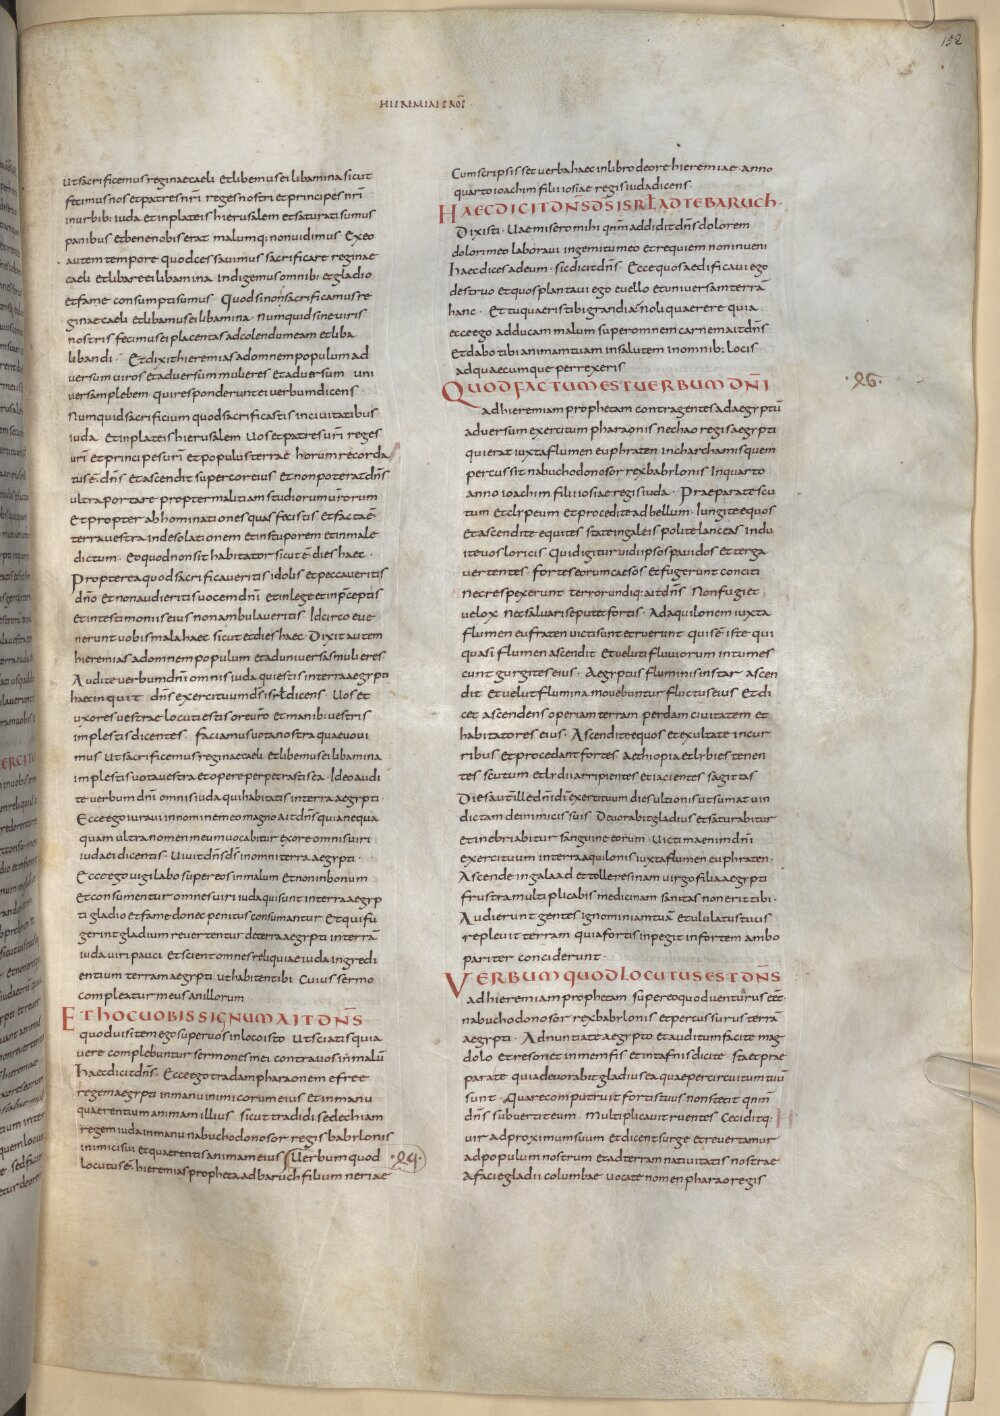 152
HIEREMIAE PROF
ut sacrificemus reginae caeli et libemus ei libamina sicut
fecimus nos et patres nri reges nostri et principes nri
in urbib: iuda et in plateis hierusalem et saturati sumus
panibus et bene nobis erat malumq: non uidimus Ex eo
autem tempore quo dcessauimus sacrificare reginae
caeli et libare ei libamina indigemus omnib: et gladio
et fame consumpti sumus · Quod si nos sacrificamus re
ginae caeli et libamus ei libamina · Numquid sine uiris
nostris fecimus ei placentas ad colendum eam et liba
libandi · Et dixit hieremias ad omnem populum ad
versum uiros et adversum mulieres et adversum uni
versam plebem qui responderunt ei uerbum dicens
Numquid sacrificium quod sacrificastis in ciuitatibus
iuda Et in plateis hierusalem Uos et patres uri reges
uri et principes uri et populus terrae horum recorda
tus e dns et ascendit super cor eius Et non poterat dns
ultra portare propter malitiam studiorum urorum
Et propter abhominationes quas fecistis Et facta e
terra uestra in desolationem et in stuporem et in male
dictum · Eo quod non sit habitator sicut e dies haec ·
Propterea quod sacrificaueritis idolis et peccaueritis
dno et non audieritis uocem dni et in lege et in pceptis
et in testimoniis eius non ambulaueritis Idcirco eue
nerunt uobis mala haec sicut et dies haec Dixit autem
hieremias ad omnem populum et ad uniuersas mulieres
Audite uerbum dni omnis iuda qui estis in terra aegypti
haec inquit dns exercituum ds isrl dicens Uos et
uxores uestrae locuti estis ore uro et manib: uestris
implestis dicentes faciamus uota nostra quae uoui
mus ut sacrificemus reginae caeli et libemus ei libamina
implestis uota uestra et opere perpetrastis ea Ideo audi
te uerbum dni omnis iuda qui habitatis in terra aegypti ·
Ecce ego iuraui in nomine meo magno ait dns quia nequa
quam ultra nomen meum uocabitur ex ore omnis uiri
iudaei dicentis Uiuit dns ds in omni terra aegypti ·
Ecce ego uigilabo super eos in malum et non in bonum
Et consumentur omnes uiri iuda qui sunt in terra aegyp
ti gladio et fame donec penitus consumantur Et qui fu
gerint gladium reuertentur de terra aegypti in terra
iuda uiri pauci Et scient omnes reliquiae iuda ingredi
entium terram aegypti ut habitent ibi Cuius sermo
compleatur meus an illorum
ET HOC UOBIS SIGNUM AIT DNS
quod uisitem ego super uos in loco isto ut sciatis quia
uere complebuntur sermones mei contra uos in malu
Haec dicit dns Ecce ego tradam pharaonem efree
regem aegypti in manu inimicorum eius et in manu
quaerentium animam illius sicut tradidi sedechiam
regem iuda in manu nabuchodonosor regis babylonis
inimici sui et quaerentis animam eius Uerbum quod
locutus e hieremias propheta ad baruch filium neriae
Cum scripsisset uerba haec in libro de ore hieremiae anno
quarto ioachim filii iosiae regis iuda dicens
HAEC DICIT DNS DS ISRL AD TE BARUCH ·
Dixisti · Uae misero mihi qnm addidit dns dolorem
dolori meo laboraui in gemitu meo et requiem non inueni
haec dices ad eum · sic dicit dns Ecce quos aedificaui ego
destruo et quos plantaui ego euello et uniuersam terra
hanc · Et tu quaeris tibi grandia noli quaerere quia
ecce ego adducam malum super omnem carnem ait dns
Et dabo tibi animam tuam in salutem in omnib: locis
ad quaecumque perrexeris
QUOD FACTUM EST UERBUM DNI
ad hieremiam prophetam contra gentes ad aegyptu
adversum exercitum pharaonis nechao regis aegypti
qui erat iuxta flumen euphraten in charchamis quem
percussit nabuchodonosor rex babylonis In quarto
anno ioachim filii iosiae regis iuda · Praeparate scu
tum et clypeum et procedite ad bellum · Iungite equos
et ascendite equites state in galeis polite lanceas indu
ite uos loricis Quid igitur uidi ipsos pauidos et terga
vertentes · fortes eorum caesos Et fugerunt conciti
nec respexerunt terror undiq: ait dns Non fugiet
velox nec saluari se putet fortis Ad aquilonem iuxta
flumen eufraten uicti sunt et ruerunt quis e iste qui
quasi flumen ascendit Et ueluti fluuiorum intumes
cunt gurgites eius · Aegyptus fluminis instar ascen
dit Et uelut flumina movebuntur fluctus eius Et di
cet ascendens operiam terram perdam civitatem et
habitatores eius · Ascendite equos et exultate in cur
ribus et procedant fortes Aethiopia et lybies tenen
tes scutum et lydii arripientes et iacientes sagittas
Dies aut ille dni di exercituum dies ultionis ut sumat uin
dictam de inimicis suis Deuorabit gladius et saturabitur
et inebriabitur sanguine eorum Uictima enim dni
exercituum in terra aquilonis iuxta flumen euphraten ·
Ascende in galaad et tolle resinam uirgo filia aegypti
frustra multiplicabis medicinam sanitas non erit tibi ·
Audierunt gentes ignominiam tua et ululatus tuus
repleuit terram quia fortis inpegit in fortem ambo
pariter conciderunt
VERBUM QUOD LOCUTUS EST DNS
ad hieremiam prophetam super eo quod uenturus eet
nabuchodonosor rex babylonis et percussurus terra
aegypti · Adnuntiate aegypto et auditum facite mag
dolo et resonet in memfis et in tafnis dicite sta et prae
para te quia deuorabit gladius ea quae per circuitum tuu
sunt · Quare computruit fortis tuus non stetit qnm
dns subuertit eum Multiplicauit ruentes Ceciditq:
uir ad proximum suum et dicent surge et revertamur
ad populum nostrum et ad terram nativitatis nostrae
a facie gladii columbae uocate nomen pharao regis